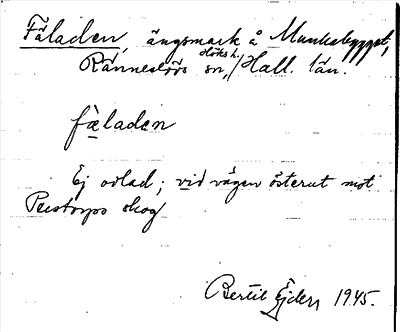 Fäladen, ängsmark å Munkabygget,
Ränneslövs sn, Höks h. Hall. län.
fæladen
Ej odlad; vid vägen österut mot
Perstorps skog
Bertil Ejder, 1945.